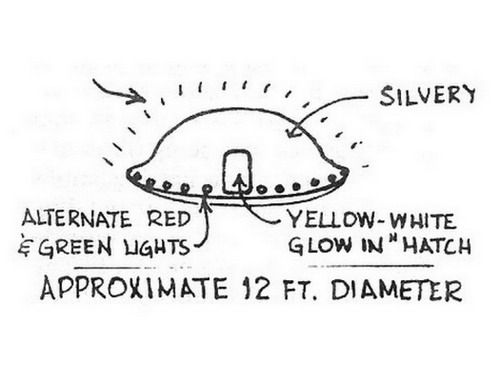 SILVERY
ALTERNATE RED
& GREEN LIGHTS
YELLOW-WHITE
GLOW IN "HATCH
APPROXIMATE 12 FT. DIAMETER